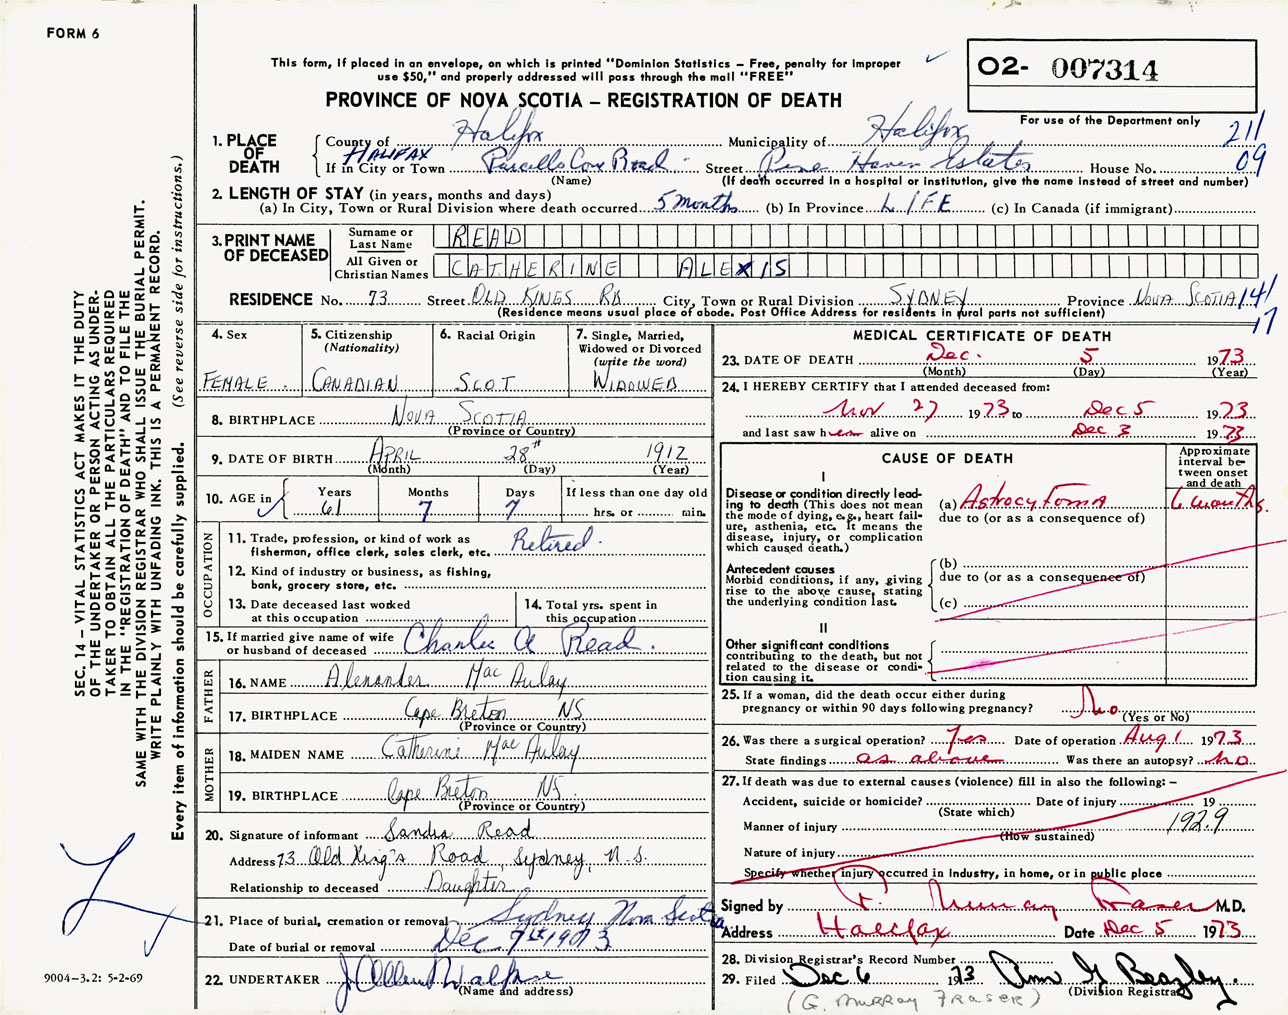 FORM 6
This form, if placed in an envelope, on which is printed "Dominion Statistics – Free, penalty for improper
use $50," and properly addressed will pass through the mail "FREE"
O2- 007314
PROVINCE OF NOVA SCOTIA – REGISTRATION OF DEATH
For use of the Department only
211
09
1. PLACE OF DEATH
County of Halifax Municipality of Halifax
HALIFAX
If in City or Town Purcells Cove Road Street Pine Haven Estates House No.
(Name) (If death occurred in a hospital or institution, give the name instead of street and number)
2. LENGTH OF STAY (in years, months and days)
(a) In City, Town or Rural Division where death occurred 5 months (b) In Province LIFE (c) In Canada (if immigrant)
3. PRINT NAME OF DECEASED
Surname or Last Name READ
All Given or Christian Names CATHERINE ALEXIS
RESIDENCE No. 73 Street OLD KINGS RD City, Town or Rural Division SYDNEY Province NOVA SCOTIA 141
17
(Residence means usual place of abode. Post Office Address for residents in rural parts not sufficient)
4. Sex
FEMALE
5. Citizenship
(Nationality)
CANADIAN
6. Racial Origin
SCOT
7. Single, Married,
Widowed or Divorced
(write the word)
WIDOWED
8. BIRTHPLACE NOVA SCOTIA
(Province or Country)
9. DATE OF BIRTH APRIL 28th 1912
(Month) (Day) (Year)
10. AGE in
Years Months Days If less than one day old
61 7 7 hrs. or min.
OCCUPATION
11. Trade, profession, or kind of work as
fisherman, office clerk, sales clerk, etc. Retired.
12. Kind of industry or business, as fishing,
bank, grocery store, etc.
13. Date deceased last worked
at this occupation
14. Total yrs. spent in
this occupation
15. If married give name of wife
or husband of deceased Charles A Read.
FATHER
16. NAME Alexander MacAulay
17. BIRTHPLACE Cape Breton NS
(Province or Country)
MOTHER
18. MAIDEN NAME Catherine MacAulay
19. BIRTHPLACE Cape Breton NS.
(Province or Country)
20. Signature of informant Sandra Read
Address 73 Old King's Road, Sydney, N.S.
Relationship to deceased Daughter
21. Place of burial, cremation or removal Sydney Nova Scotia
Date of burial or removal Dec 7th 1973
22. UNDERTAKER J Allen
(Name and address)
MEDICAL CERTIFICATE OF DEATH
23. DATE OF DEATH Dec. 5 1973
(Month) (Day) (Year)
24. I HEREBY CERTIFY that I attended deceased from:
Nov 27 1973 to Dec 5 1973
and last saw her alive on Dec 3 1973
CAUSE OF DEATH
Approximate
interval be-
tween onset
and death
I
Disease or condition directly lead-
ing to death (This does not mean
the mode of dying, e.g., heart fail-
ure, asthenia, etc. It means the
disease, injury, or complication
which caused death.)
(a) Astrocytoma 6 months.
due to (or as a consequence of)
Antecedent causes
Morbid conditions, if any, giving
rise to the above cause, stating
the underlying condition last.
(b)
due to (or as a consequence of)
(c)
II
Other significant conditions
contributing to the death, but not
related to the disease or condi-
tion causing it.
25. If a woman, did the death occur either during
pregnancy or within 90 days following pregnancy? No
(Yes or No)
26. Was there a surgical operation? Yes Date of operation Aug 1 1973
State findings as above Was there an autopsy? No
27. If death was due to external causes (violence) fill in also the following: –
Accident, suicide or homicide? Date of injury 19
(State which)
Manner of injury 192.9
(How sustained)
Nature of injury
Specify whether injury occurred in industry, in home, or in public place
Signed by Murray Fraser M.D.
Address Halifax Date Dec 5 1973
28. Division Registrar's Record Number
29. Filed Dec 6 1973 Ann G Beazley.
(Division Registrar)
(G. MURRAY FRASER)
SEC. 14 – VITAL STATISTICS ACT MAKES IT THE DUTY
OF THE UNDERTAKER OR PERSON ACTING AS UNDER-
TAKER TO OBTAIN ALL THE PARTICULARS REQUIRED
IN THE "REGISTRATION OF DEATH" AND TO FILE THE
SAME WITH THE DIVISION REGISTRAR WHO SHALL ISSUE THE BURIAL PERMIT.
WRITE PLAINLY WITH UNFADING INK. THIS IS A PERMANENT RECORD.
Every item of information should be carefully supplied. (See reverse side for instructions.)
9004-3.2: 5-2-69